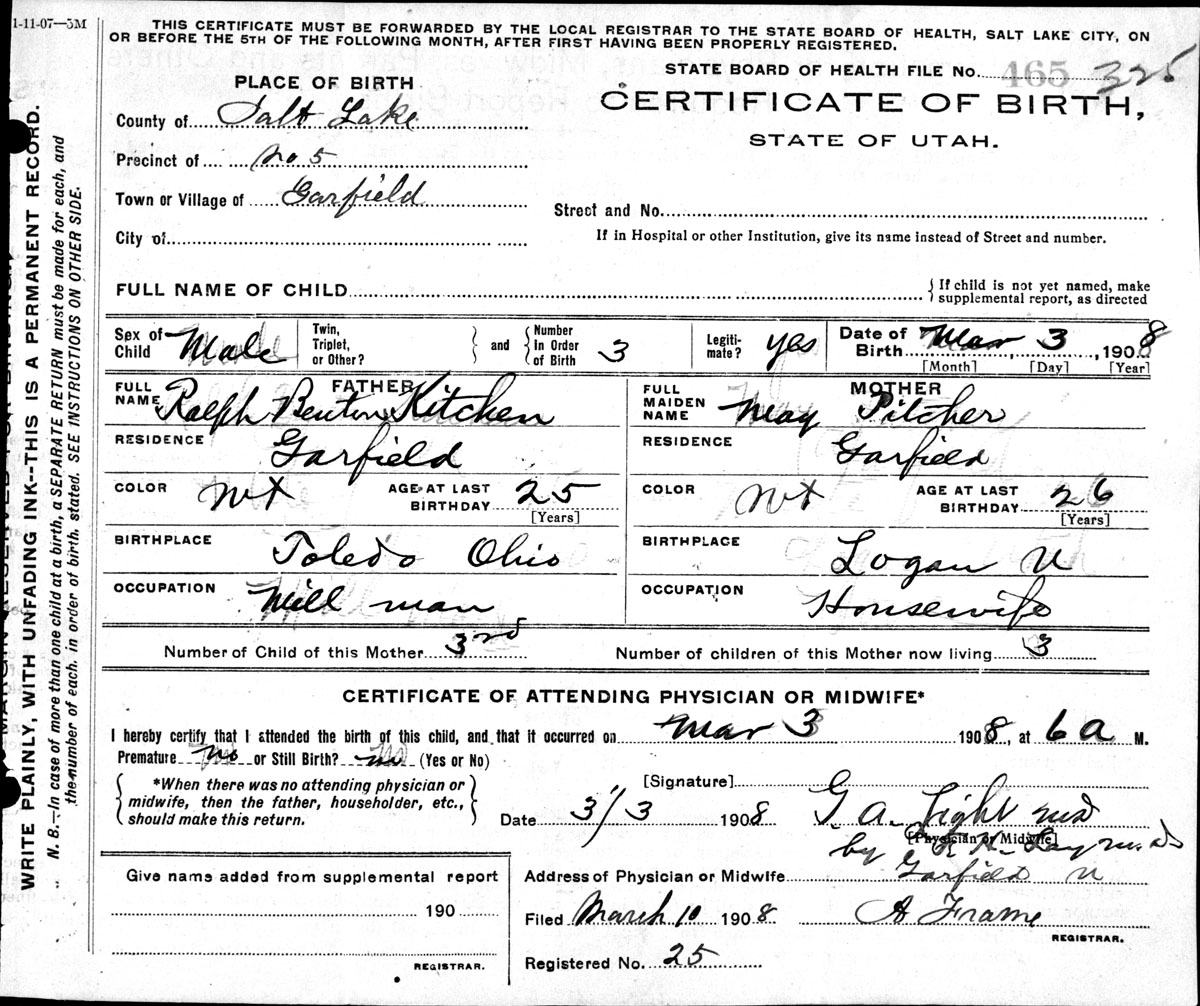 1-11-07—5M
THIS CERTIFICATE MUST BE FORWARDED BY THE LOCAL REGISTRAR TO THE STATE BOARD OF HEALTH, SALT LAKE CITY, ON
OR BEFORE THE 5TH OF THE FOLLOWING MONTH, AFTER FIRST HAVING BEEN PROPERLY REGISTERED.
STATE BOARD OF HEALTH FILE No. 465 325
CERTIFICATE OF BIRTH,
STATE OF UTAH.
PLACE OF BIRTH
County of Salt Lake
Precinct of No 5
Town or Village of Garfield
Street and No.
City of
If in Hospital or other Institution, give its name instead of Street and number.
FULL NAME OF CHILD
{ If child is not yet named, make
supplemental report, as directed
Sex of Child Male
Twin, Triplet, or Other?
} and { Number In Order of Birth 3
Legiti-mate? yes
Date of Birth Mar 3, 1908
[Month] [Day] [Year]
FATHER
FULL NAME Ralph Benton Kitchen
RESIDENCE Garfield
COLOR Wt AGE AT LAST BIRTHDAY 25
[Years]
BIRTHPLACE Toledo Ohio
OCCUPATION Mill man
MOTHER
FULL MAIDEN NAME May Pitcher
RESIDENCE Garfield
COLOR Wt AGE AT LAST BIRTHDAY 26
[Years]
BIRTHPLACE Logan U
OCCUPATION Housewife
Number of Child of this Mother 3rd Number of children of this Mother now living 3
CERTIFICATE OF ATTENDING PHYSICIAN OR MIDWIFE*
I hereby certify that I attended the birth of this child, and that it occurred on Mar 3 1908, at 6 a M.
Premature no or Still Birth? no (Yes or No)
{ *When there was no attending physician or
midwife, then the father, householder, etc.,
should make this return. }
[Signature]
Date 3/3 1908 G. A. Light md
[Physician or Midwife]
by
Address of Physician or Midwife Garfield U
Filed March 10 1908 A Frame
REGISTRAR.
Registered No. 25
Give name added from supplemental report
190
REGISTRAR.
WRITE PLAINLY, WITH UNFADING INK--THIS IS A PERMANENT RECORD.
N. B.—In case of more than one child at a birth, a SEPARATE RETURN must be made for each, and
the number of each, in order of birth, stated. SEE INSTRUCTIONS ON OTHER SIDE.